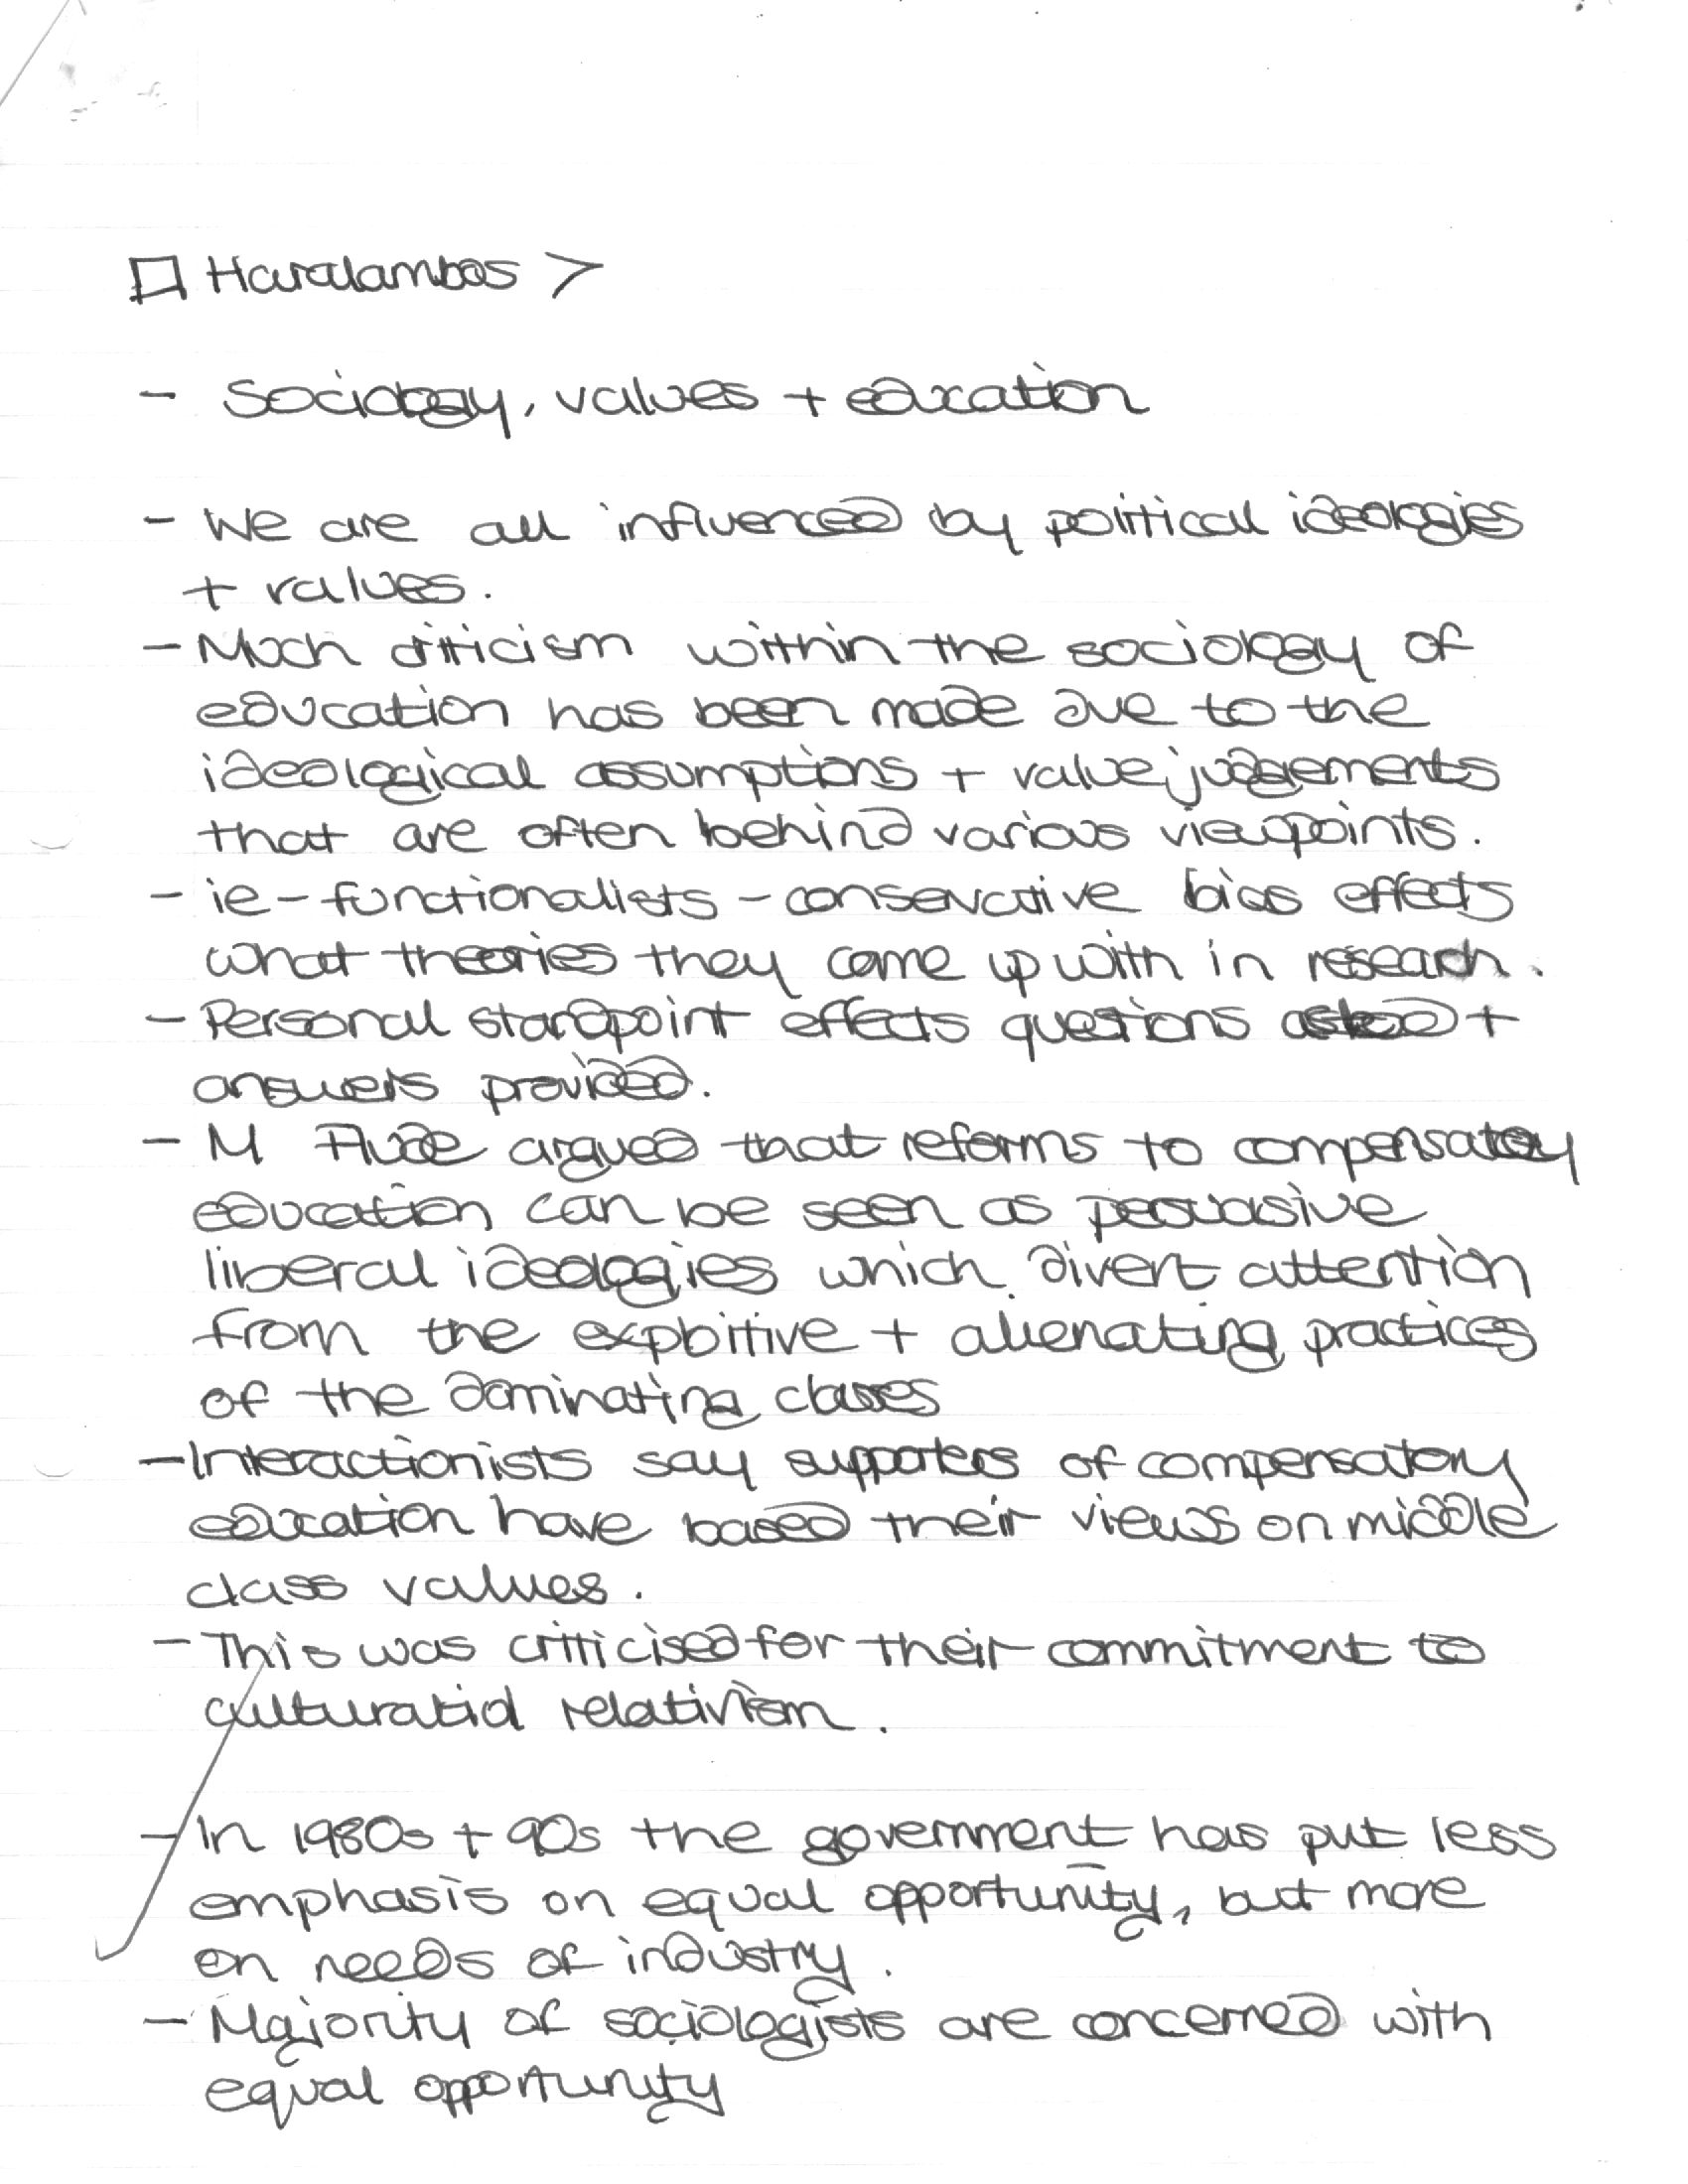 □ Haralambos >
- Sociology, values + education
- We are all influenced by political ideologies
+ values.
- Much criticism within the sociology of
education has been made due to the
ideological assumptions + value judgements
that are often behind various viewpoints.
- ie - functionalists - conservative bias effects
what theories they come up with in research.
- Personal standpoint effects questions asked +
answers provided.
- M Flude argued that reforms to compensatory
education can be seen as persuasive
liberal ideologies which divert attention
from the exploitive + alienating practices
of the dominating classes
- Interactionists say supporters of compensatory
education have based their views on middle
class values.
- This was criticised for their commitment to
relativism.
- In 1980s + 90s the government has put less
emphasis on equal opportunity, but more
on needs of industry.
- Majority of sociologists are concerned with
equal opportunity